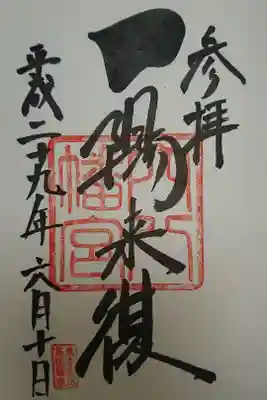 参拝
一陽来復
平成二十九年六月十日
穴八
幡宮